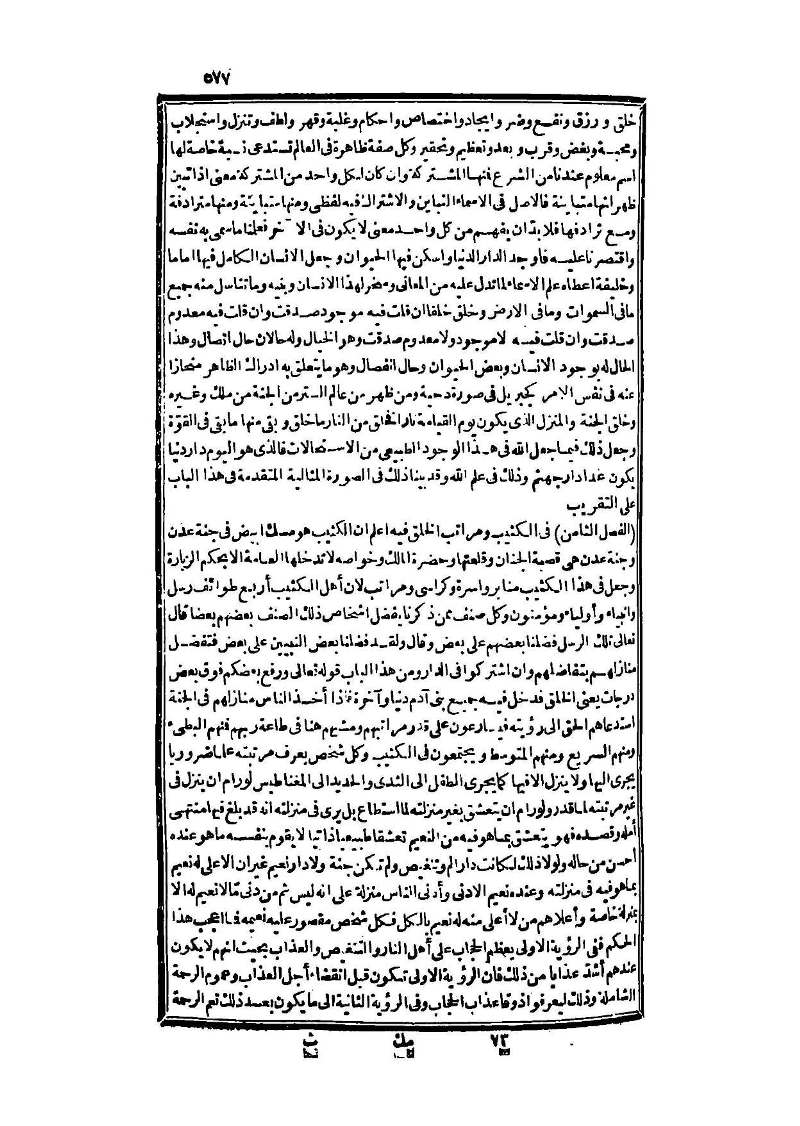 ٥٧٧
خلق و رزق ونفع وضر وايجاد واختصاص واحكام وغلبة وقهر ولطف وتنزل واستجلاب
ومحبة وبغض وقرب وبعد وتعظيم وتحقير وكل صفة ظاهرة فى العالم تستدعى نسبة خاصة لها
اسم معلوم عندنا من الشرع فنها المشتركة وان كان لكل واحد من المشتركة معنى اذا تبين
ظهر انها متباينة فالاصل فى الاسماء التباين والاشتراك فيه لفظى ومنها متباينة ومنها مترادفة
ومع ترادفها فلا بد ان يفهم من كل واحد معنى لا يكون فى الآخر فعلنا ما سمى به نفسه
واقتصرنا عليه فاوجد الدار الدنيا واسكن فيها الحيوان وجعل الانسان الكامل فيها اماما
وخليفة اعطاه علم الاسماء لما تدل عليه من المعانى وسخر لهذا الانسان وبنيه وما تناسل منه جميع
ما فى السموات وما فى الارض وخلق خلقا ان قلت فيه موجود صدقت وان قلت فيه معدوم
صدقت وان قلت فيه لا موجود ولا معدوم صدقت وهو الخيال وله حالان حال اتصال وهذا
الحال له بوجود الانسان وبعض الحيوان وحال انفصال وهو ما يتعلق به ادراك الظاهر منحازا
عنه فى نفس الامر كجبريل فى صورة دحية ومن ظهر من عالم الستر من الجنة من ملك وغيره
وخلق الجنة والمنزل الذى يكون يوم القيامة نارا فخلق من النار ما خلق وبقى منها ما بقى فى القوة
وجعل ذلك فيما جعل الله فى هذا الوجود الطبيعى من الاستحالات فالذى هو اليوم دار دنيا
يكون غدا دار جهنم وذلك فى علم الله وقد بينا ذلك فى الصورة المثالية المتقدمة فى هذا الباب
على التقريب
(الفصل الثامن) فى الكثيب ومراتب الخلق فيه اعلم ان الكثيب هو مسك ابيض فى جنة عدن
وجنة عدن هى قصبة الجنان وقلعتها وحضرة الملك وخواصه لا تدخلها العامة الا بحكم الزيارة
وجعل فى هذا الكثيب منابر واسرة وكراسى ومراتب لان أهل الكثيب أربع طوائف رسل
وانبياء وأولياء ومؤمنون وكل صنف ممن ذكرنا يفضل اشخاص ذلك الصنف بعضهم بعضا قال
تعالى تلك الرسل فضلنا بعضهم على بعض وقال ولقد فضلنا بعض النبيين على بعض فتفضل
منازلهم بتفاضلهم وان اشتركوا فى الدار ومن هذا الباب قوله تعالى ورفع بعضكم فوق بعض
درجات يعنى الخلق فدخل فيه جميع بنى آدم دنيا وآخرة فاذا أخذ الناس منازلهم فى الجنة
استدعاهم الحق الى رؤيته فيسارعون على قدر مراتبهم ومشيهم هنا فى طاعة ربهم فنهم البطىء
ومنهم السريع ومنهم المتوسط و يجتمعون فى الكثيب وكل شخص يعرف مرتبته علما ضروريا
يجرى اليها ولا ينزل الا فيها كما يجرى الطفل الى الثدى والحديد الى المغناطيس لو رام ان ينزل فى
غير مرتبته لما قدر ولو رام ان يتعشق بغير منزلته لما استطاع بل يرى فى منزلته انه قد بلغ فيها منتهى
أمله وقصده فهو يتعشق بما هو فيه من النعيم تعشقا طبيعيا ذاتيا لا يقوم بنفسه ما هو عنده
احسن من حاله ولولا ذلك لكانت دار ألم وتنغيص ولم تكن جنة ولا دار نعيم غير ان الاعلى له نعيم
بما هو فيه فى منزلته وعنده نعيم الادنى وأدنى الناس منزلة على انه ليس ثم من دنى من لا نعيم له الا
بمنزلة خاصة وأعلاهم من لا أعلى منه له نعيم بالكل فكل شخص مقصور عليه نعيمه فما اعجب هذا
الحكم فنى الرؤية الاولى يعظم الحجاب على أهل النار والتنغيص والعذاب بحيث انهم لا يكون
عندهم أشد عذابا من ذلك فان الرؤية الاولى تكون قبل انقضاء أجل العذاب وعموم الرحمة
الشاملة وذلك ليعرفوا ذوقا عذاب الحجاب وفى الرؤية الثانية الى ما يكون بعد ذلك تعم الرحمة
٧٣ مك ث